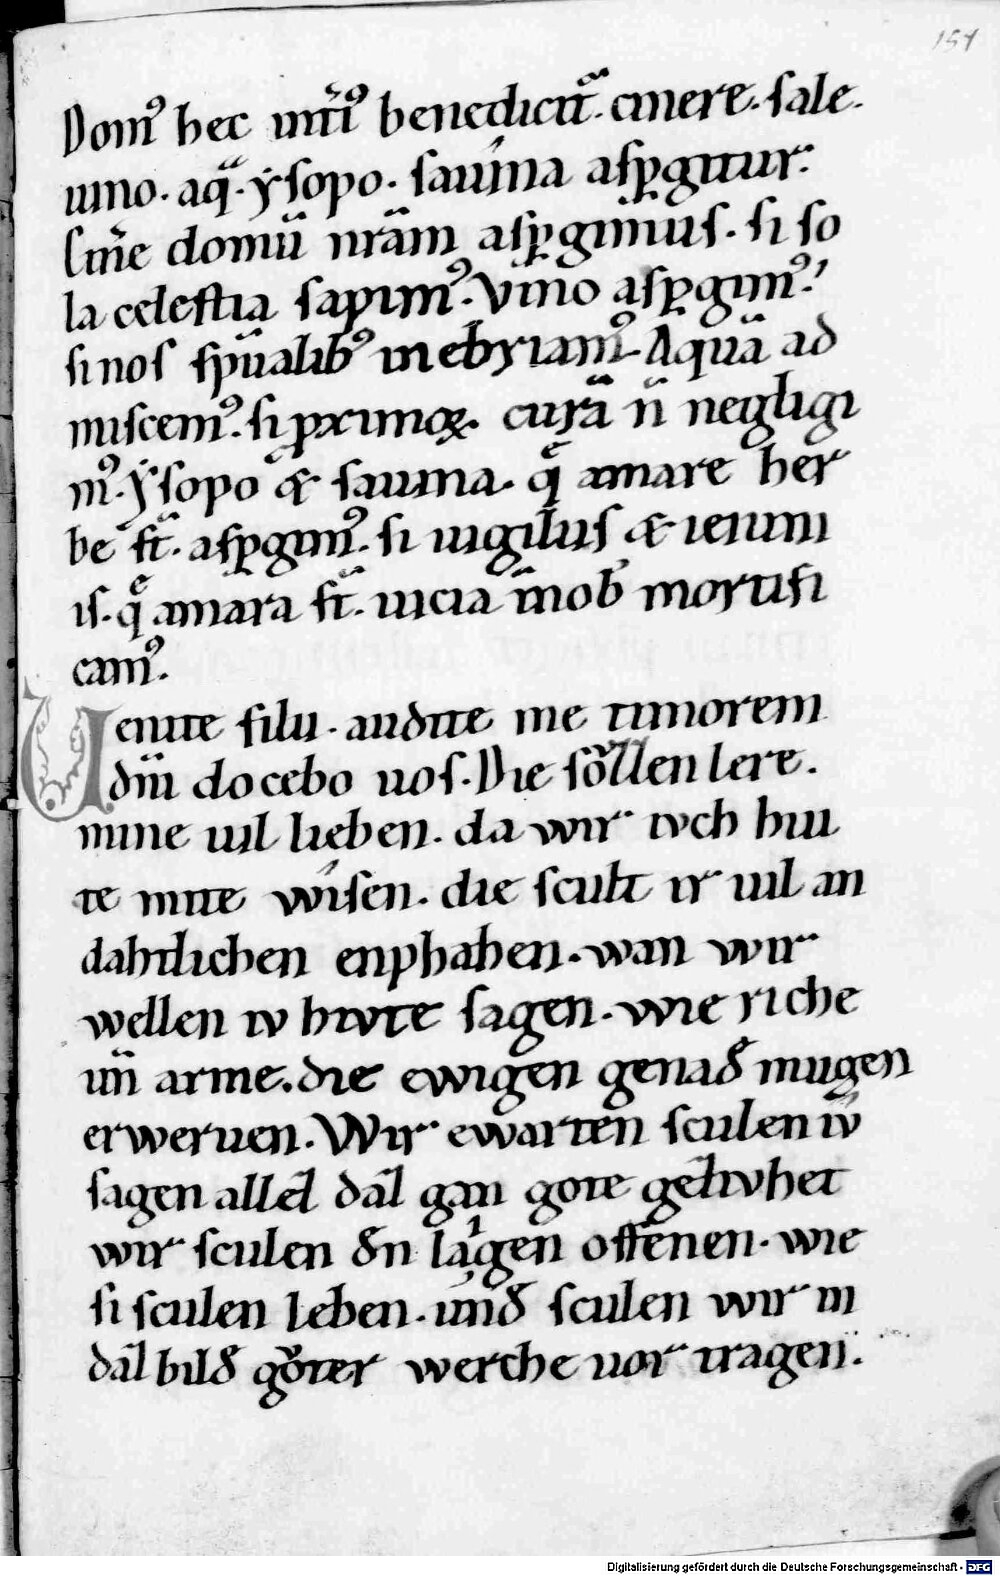 154
Domꝰ hec intꝰ benedicit̄. cinere. sale.
uino. aq̄. ysopo. sauina asꝑgitur.
Cine domū nr̄am asꝑgimus. si so
la celestia sapimꝰ. Vino asꝑgimꝰ.
si nos spūalibꝰ inebriamꝰ. Aquā ad
miscemꝰ. si ꝓximoꝝ. curā n̄ negligi
mꝰ. Ysopo & sauina. q̄ amare her
be st̄. asꝑgimꝰ. si uigiliis & ieiuni
is. q̄ amara st̄. uicia in nob̄ mortifi
camꝰ.
Uenite filii. audite me timorem
dn̄i docebo uos. Die sollen lere.
mine uil lieben. da wir ivch hiu
te mite wisen. die scult ir uil an
dahtlichen enphahen. wan wir
wellen iv hivte sagen. wie riche
un̄ arme. die ewigen genad mugen
erweruen. Wir ewarten sculen iv
sagen allez daz gan gote gezivhet
wir sculen dn laigen offenen. wie
si sculen leben. und sculen wir in
daz bild goter werche uor tragen.
Digitalisierung gefördert durch die Deutsche Forschungsgemeinschaft - DFG